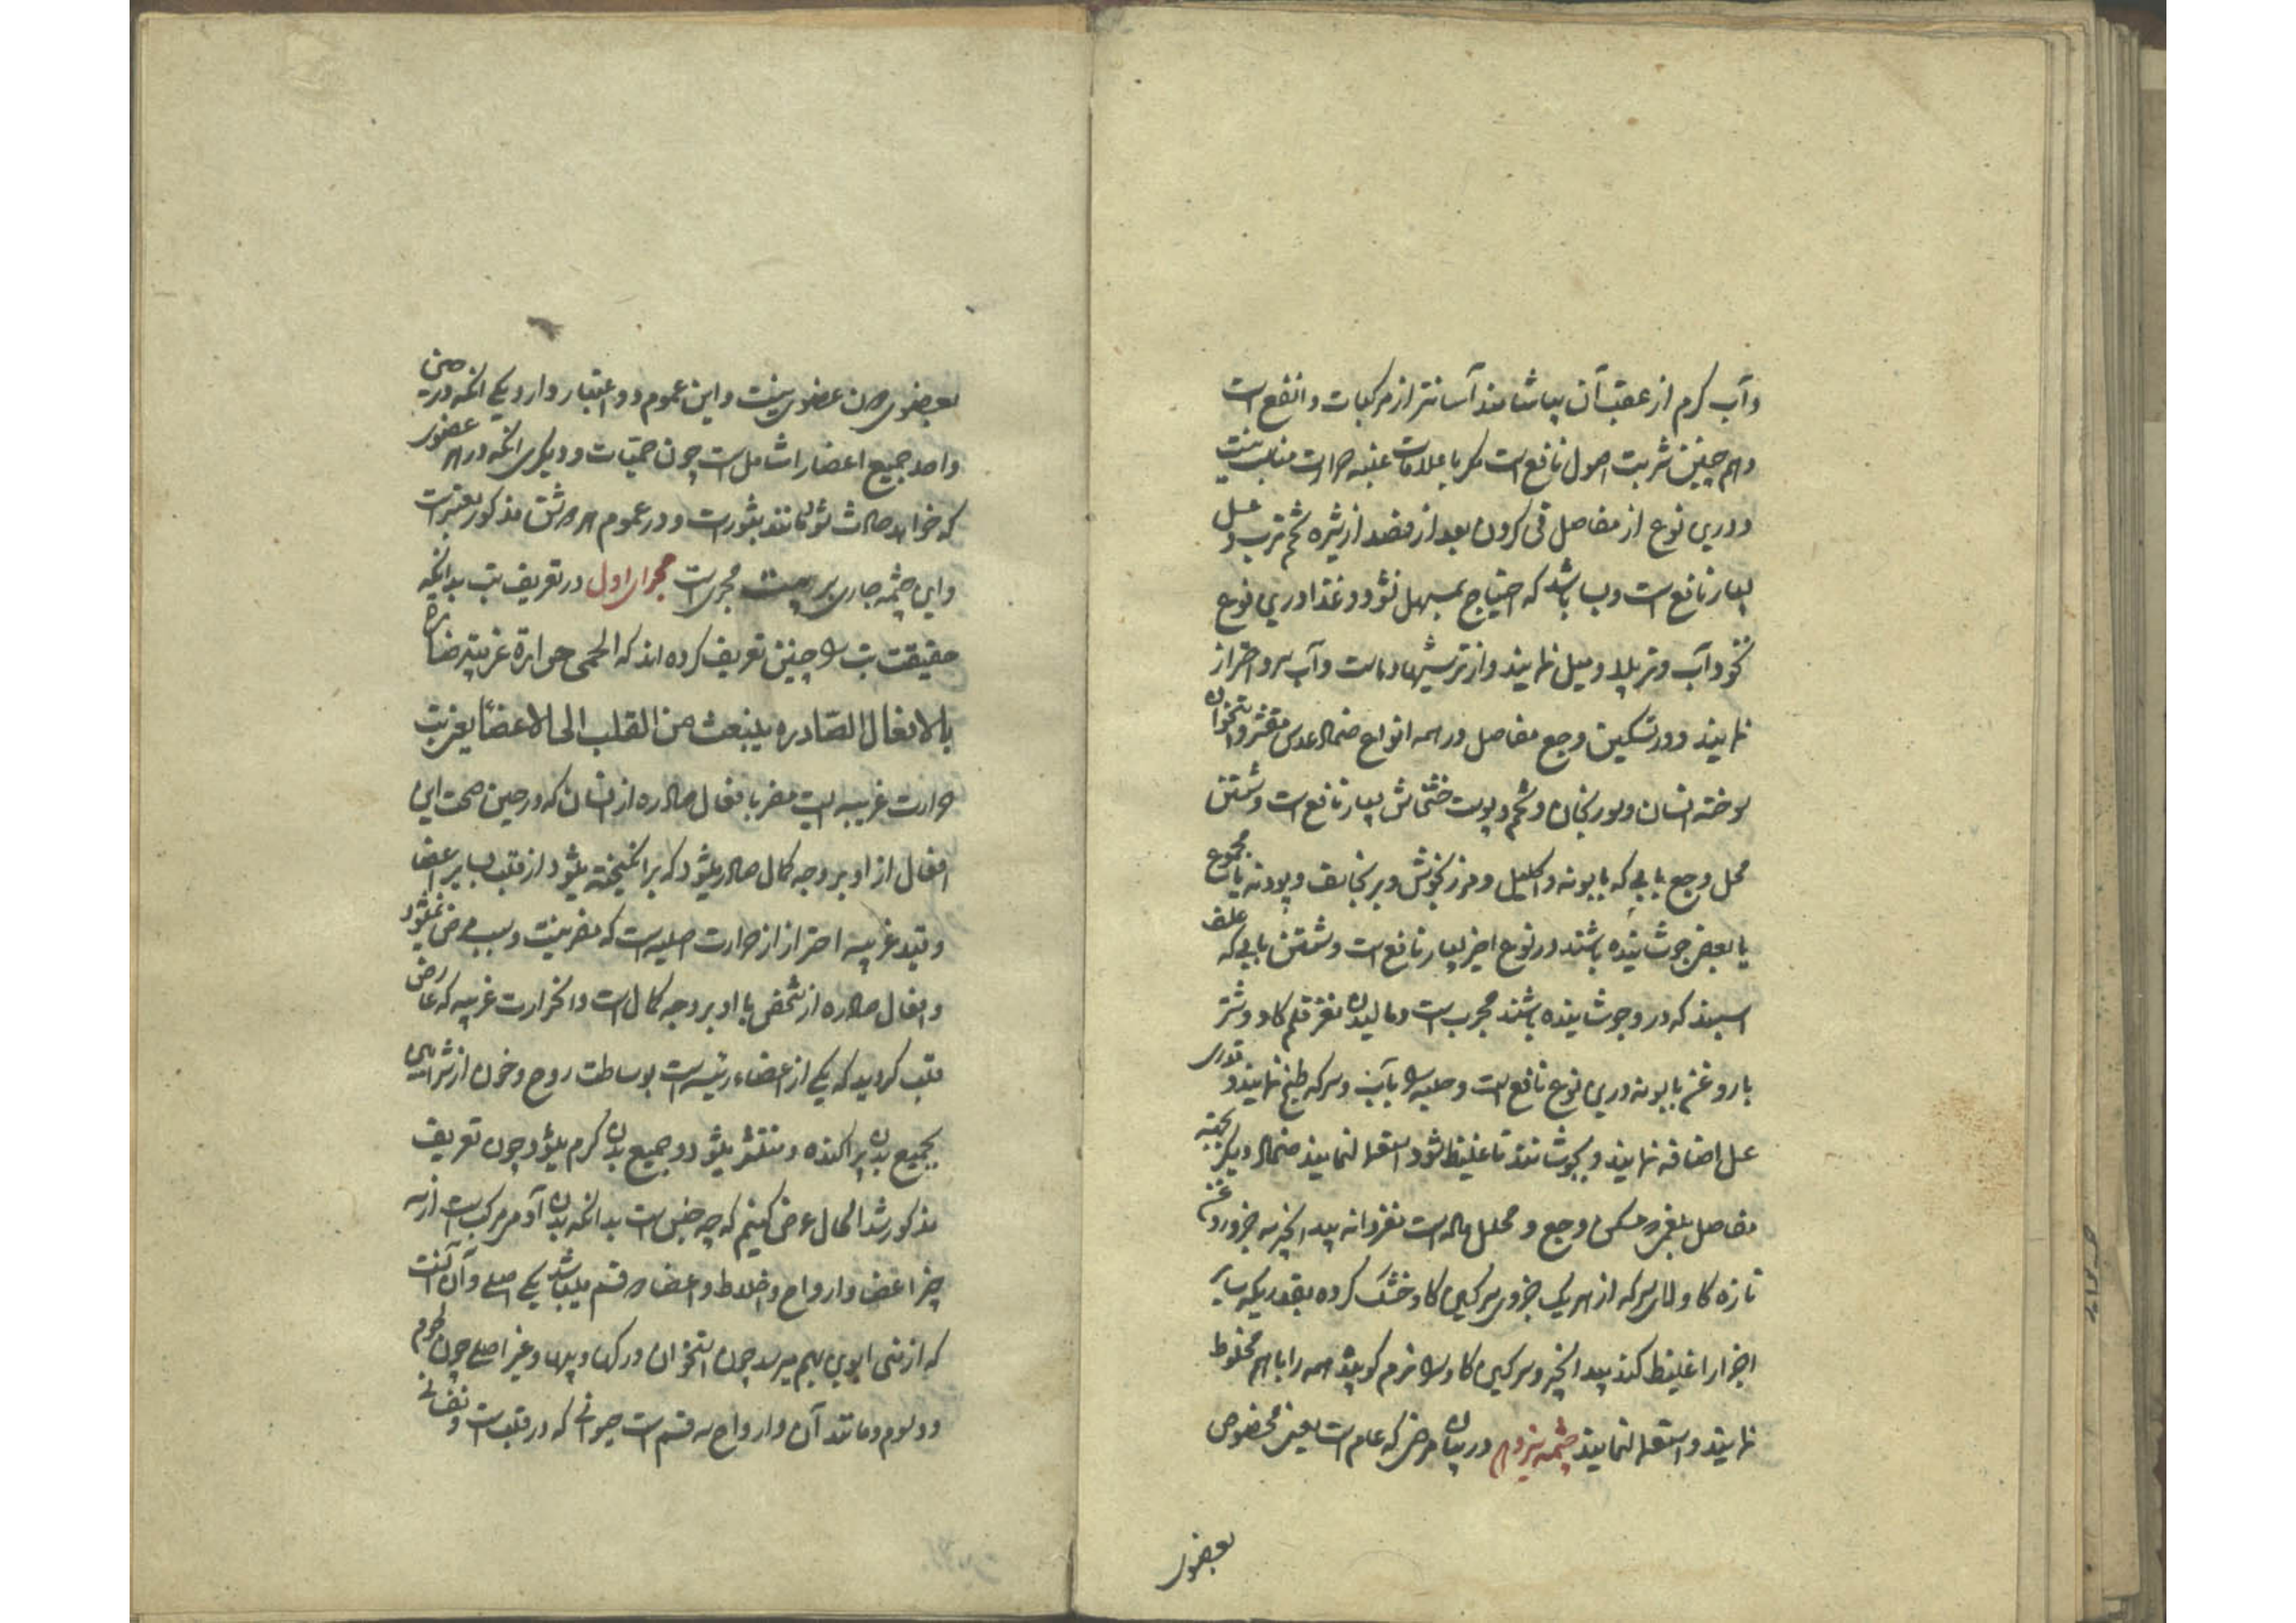 وآب کرم از عقب آن بیاشامند آسانتر از مرکبات و انفع است
و هم چنین شربت اصول نافع است مکر با علامات غلبه حرارت مناسب نیست
و درین نوع از مفاصل قی کردن بعد از فصد از شیره تخم ترب و عسل
بسیار نافع است و بسا باشد که احتیاج بمسهل نشود و غذا درین نوع
نخود آب و نمایند و از ترشیها و ماست و آب سرد احتراز
نمایند و در تسکین وجع مفاصل در همه انواع ضماد عدس مقشر و استخوان
سوخته انسان و سورنجان و تخم و پوست خشخاش بسیار نافع است و شستن
محل وجع بابی که بابونه و اکلیل و مرزنجوش و برنجاسف و پودنه یا مجموع
یا بعضی جوشانیده باشند در نوع اخیر بسیار نافع است و شستن بابی که علف
اسپند که در و جوشانیده باشند مجرب است و مالیدن مغز قلم کاو و شتر
با روغن بابونه درین نوع نافع است و حلبه را بآب و سرکه طبخ نمایند و قدری
عسل اضافه نمایند و بجوشانند تا غلیظ شود استعمال نمایند ضماد دیکر بجهة
مفاصل بلغمی مسکن وجع و محلل ماده است مغز دانه بید انجیر سه جزو روغن
تازه کاو سرکه از هریک جزوی سرکین کاو خشک کرده بقدریکه سایر
اجزا را غلیظ کند بید انجیر و سرکین کاو را نرم کوبیده همه را باهم مخلوط
نمایند و استعمال نمایند چشمه سیزدهم در بیان مرضی که عام است یعنی مخصوص
بعضوی
بعضوی دون عضوی نیست و این عموم دو اعتبار دارد یکی انکه در حین
واحد جمیع اعضا را شامل است چون حمیات و دیکری انکه در هر عضوی
که خواهد حادث شود مانند بثورات و در عموم هر دو شق مذکور معتبر است
و این چشمه جاری بر بیست مجری است مجرای اول در تعریف تب بدانکه
حقیقت تب را چنین تعریف کرده اند که الحمی حرارة غریبة ضارة
بالافعال الصادره ینبعث من القلب الی الاعضاء یعنی تب
حرارت غریبه ایست مضر بافعال صادره از انسان که در حین صحت این
افعال از او بر وجه کمال صادر میشود که برانکیخته میشود از قلب بسایر اعضا
و قید غریبه احتراز از حرارت اصلیه است که مضر نیست و سبب مرض نمیشود
و افعال صادره از شخص با او بر وجه کمال است و انحرارت غریبه که عارض
قلب کردید که یکی از اعضاء رئیسه است بوساطت روح و خون از شرائین
بجمیع بدن پراکنده و منتشر میشود و جمیع بدن کرم میشود چون تعریف
مذکور شد الحال عرض کنیم که چه جنس است بدانکه بدن آدمی مرکب است از سه
چیز اعضا و ارواح و اخلاط و اعضا دو قسم میباشد یکی اصلی و آن آنست
که از منی ابوین بهم میرسد چون استخوان و رکها و پیها و غیر اصلی چون لحوم
و دسوم و مانند آن و ارواح سه قسم است حیوانی که در قلب است و نفسانی